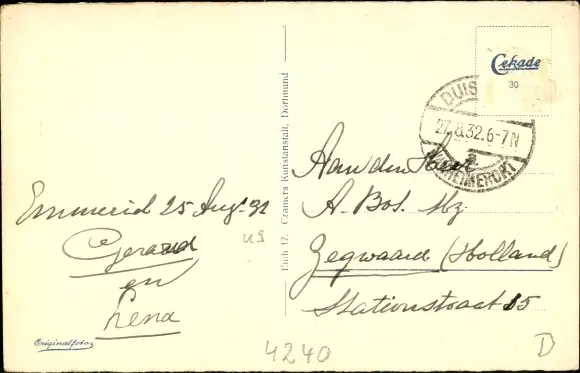 Cekade
30
DUIS
27.8.32.6-7N
a.
WANHEIMERORT
Aan den Heer
A. Bos. Mz
Zegwaard (Holland)
Stationstraat 15
Emmerich 25 Aug. 32
Gerard
en
Lena
Erich 17. Cramers Kunstanstalt, Dortmund
Originalfoto
4240
D